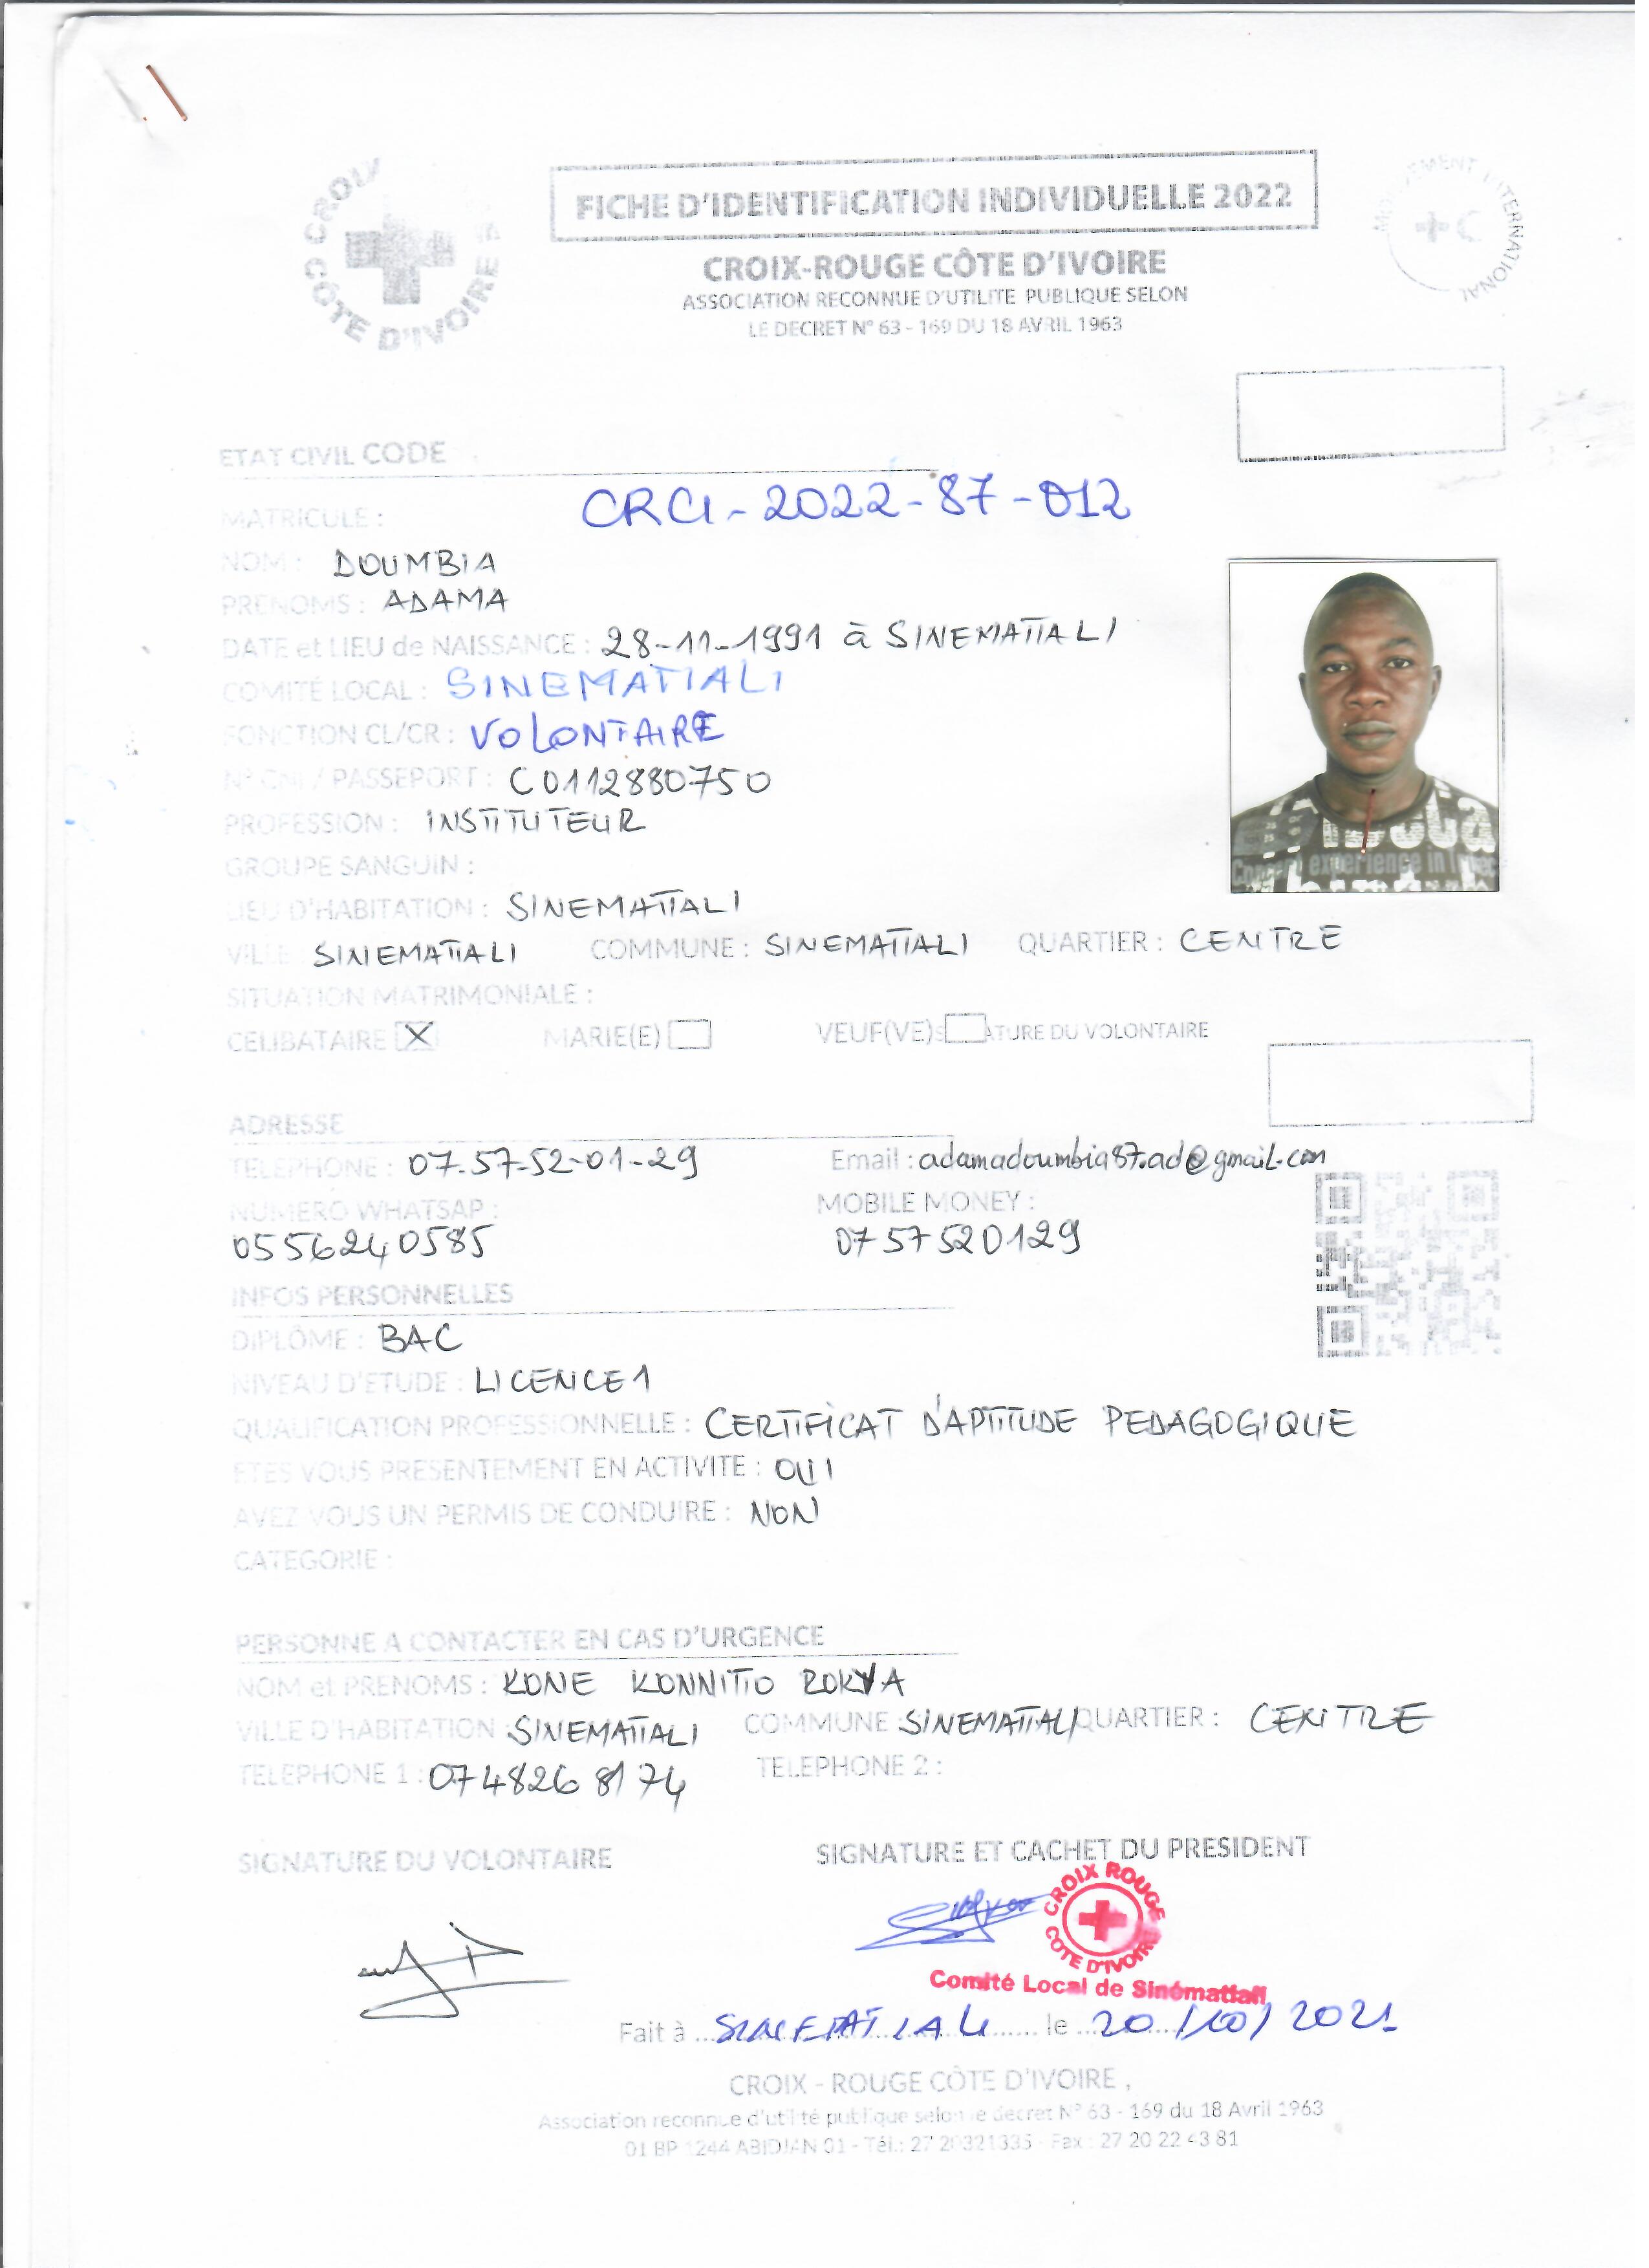 CROIX
CÔTE D'IVOIRE
FICHE D'IDENTIFICATION INDIVIDUELLE 2022
INTERNATIONAL
CROIX-ROUGE CÔTE D'IVOIRE
ASSOCIATION RECONNUE D'UTILITE PUBLIQUE SELON
LE DECRET N° 63 - 169 DU 18 AVRIL 1963
ETAT CIVIL CODE
MATRICULE : CRCI-2022-87-012
NOM : DOUMBIA
PRENOMS : ADAMA
DATE et LIEU de NAISSANCE : 28-11-1991 à SINEMATIALI
COMITÉ LOCAL : SINEMATIALI
FONCTION CL/CR : VOLONTAIRE
N° CNI / PASSEPORT : C0112880750
PROFESSION : INSTITUTEUR
GROUPE SANGUIN :
LIEU D'HABITATION : SINEMATIALI
VILLE : SINEMATIALI COMMUNE : SINEMATIALI QUARTIER : CENTRE
SITUATION MATRIMONIALE :
CELIBATAIRE X MARIE(E) VEUF(VE) ATURE DU VOLONTAIRE
ADRESSE
TELEPHONE : 07-57-52-01-29 Email : adamadoumbia87.ad@gmail.com
NUMERO WHATSAP : MOBILE MONEY :
0556240585 0757520129
INFOS PERSONNELLES
DIPLÔME : BAC
NIVEAU D'ETUDE : LICENCE1
QUALIFICATION PROFESSIONNELLE : CERTIFICAT D'APTITUDE PEDAGOGIQUE
ETES VOUS PRESENTEMENT EN ACTIVITE : OUI
AVEZ VOUS UN PERMIS DE CONDUIRE : NON
CATEGORIE :
PERSONNE A CONTACTER EN CAS D'URGENCE
NOM et PRENOMS : KONE KONNITIO ROKYA
VILLE D'HABITATION : SINEMATIALI COMMUNE : SINEMATIALI QUARTIER : CENTRE
TELEPHONE 1 : 0748268174 TELEPHONE 2 :
SIGNATURE DU VOLONTAIRE SIGNATURE ET CACHET DU PRESIDENT
CROIX ROUGE
COTE D'IVOIRE
Comité Local de Sinématiali
Fait à SINEMATIALI le 20/10/2021
CROIX - ROUGE CÔTE D'IVOIRE ,
Association reconnue d'utilité publique selon le decret N° 63 - 169 du 18 Avril 1963
01 BP 1244 ABIDJAN 01 - Tél.: 27 20321335 - Fax : 27 20 22 43 81